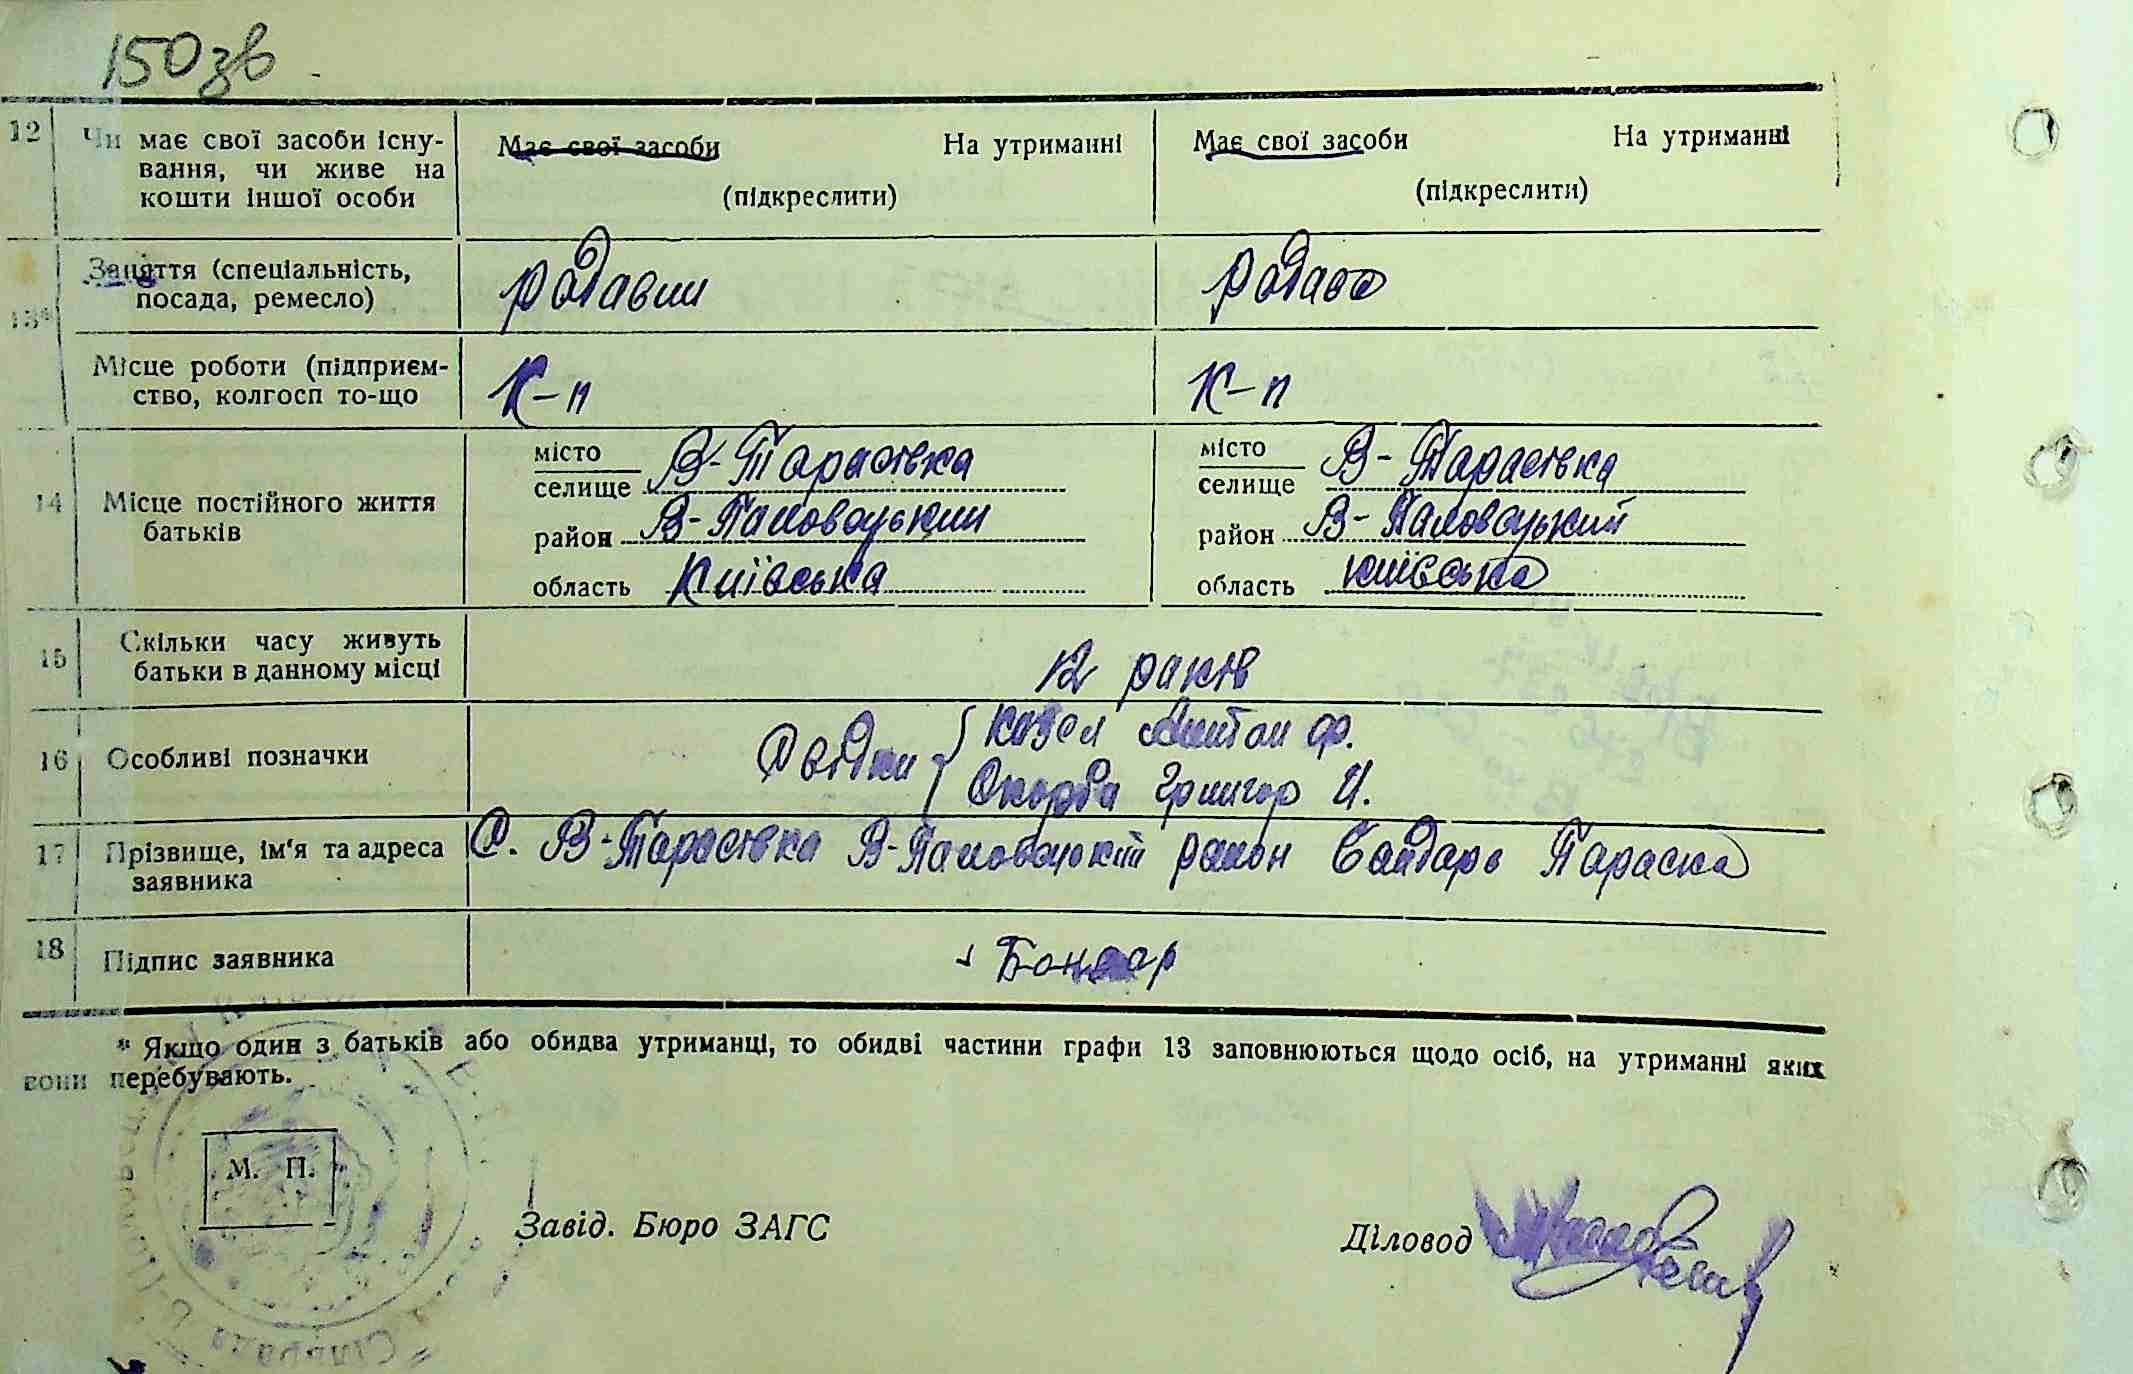 150зв
12 Чи має свої засоби існу- Має свої засоби На утриманні Має свої засоби На утриманні
вання, чи живе на (підкреслити) (підкреслити)
кошти іншої особи
Заняття (спеціальність,
посада, ремесло)
13*
Місце роботи (підприєм- К-п К-п
ство, колгосп то-що
місто В-Тарасівка місто В-Тарасівка
селище селище
14 Місце постійного життя
батьків
район В-Половецький район В-Половецький
область Київська область Київська
15 Скільки часу живуть
батьки в данному місці 12 років
16 Особливі позначки Свідки Козел Антон Ф.
Скорба Григор И.
17 Прізвище, ім'я та адреса С. В-Тарасівка В-Половецький район Бондарь Параска
заявника
18 Підпис заявника Бондар
* Якщо один з батьків або обидва утриманці, то обидві частини графи 13 заповнюються щодо осіб, на утриманні яких
вони перебувають.
М. П.
Завід. Бюро ЗАГС Діловод